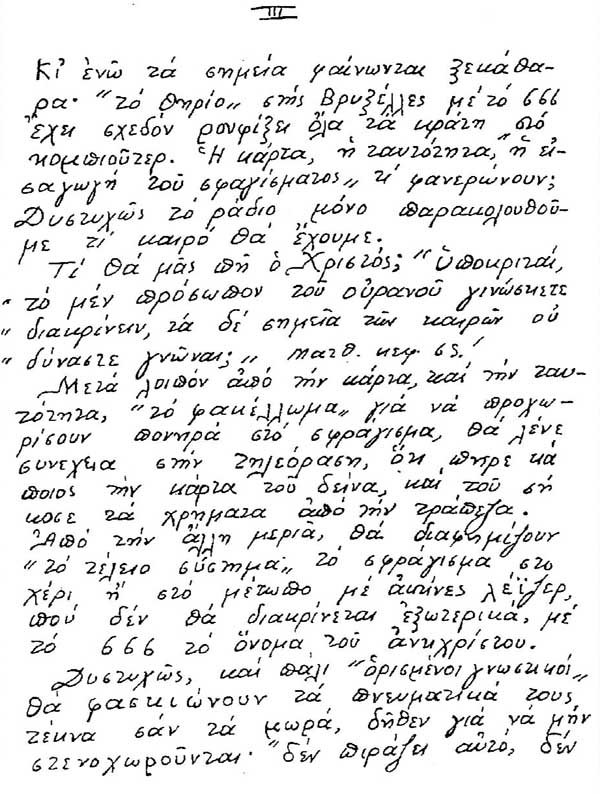 III
Κι' ἐνῶ τά σημεία φαίνωνται ξεκάθα-
ρα· "τό θηρίο„ στής Βρυξέλλες μέ τό 666
ἔχει σχεδόν ρουφίξει ὅλα τά κράτη στό
κομπιοῦτερ. Ἡ κάρτα, ἡ ταυτότητα, "ἡ εἰ-
σαγωγή τοῦ σφαγίσματος„ τί φανερώνουν;
Δυστυχῶς τό ράδιο μόνο παρακολουθοῦ-
με τί καιρό θά ἔχουμε.
Τί θά μᾶς πῆ ὁ Χριστός; "Ὑποκριταί,
"τό μέν πρόσωπον τοῦ οὐρανοῦ γινώσκετε
"διακρίνειν, τά δέ σημεῖα τῶν καιρῶν οὐ
"δύναστε γνῶναι;„ Ματθ. κεφ. ΙϚ!
Μετά λοιπόν ἀπό τήν κάρτα, καί τήν ταυ-
τότητα, "τό φακέλλωμα„ γιά νά προχω-
ρίσουν πονηρά στό σφράγισμα, θά λένε
συνεχεια στήν τηλεόραση, ὅτι πῆρε κά
ποιος τήν κάρτα τοῦ δείνα, καί τοῦ σή
κοσε τά χρήματα ἀπό τήν τράπεζα.
Ἀπό τήν ἄλλη μεριά, θά διαφημίζουν
"τό τέλειο σύστημα„ τό σφράγισμα στο
χέρι ἤ στό μέτωπο μέ ἀκτίνες λέϊζερ,
πού δέν θά διακρίνεται ἐξωτερικά, μέ
τό 666 τό ὄνομα τοῦ ἀντιχρίστου.
Δυστυχῶς, καί πάλι "ὁρισμένοι γνωστικοί„
θά φασκιώνουν τά πνευματικά τους
τέκνα σάν τά μωρά, δῆθεν γιά νά μήν
στενοχωροῦνται· "δέν πιράζει αὐτό, δέν